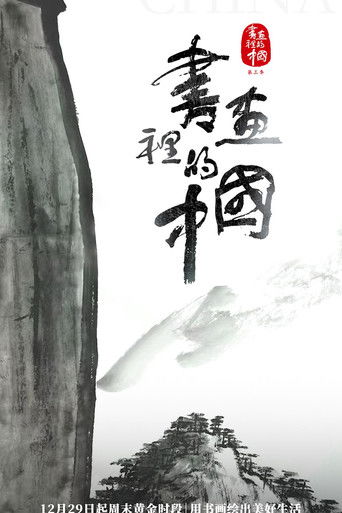 CHINA
書畫裡的中國
第三季
書畫
裡的
中國
12月29日起周末黄金时段｜用书画绘出美好生活